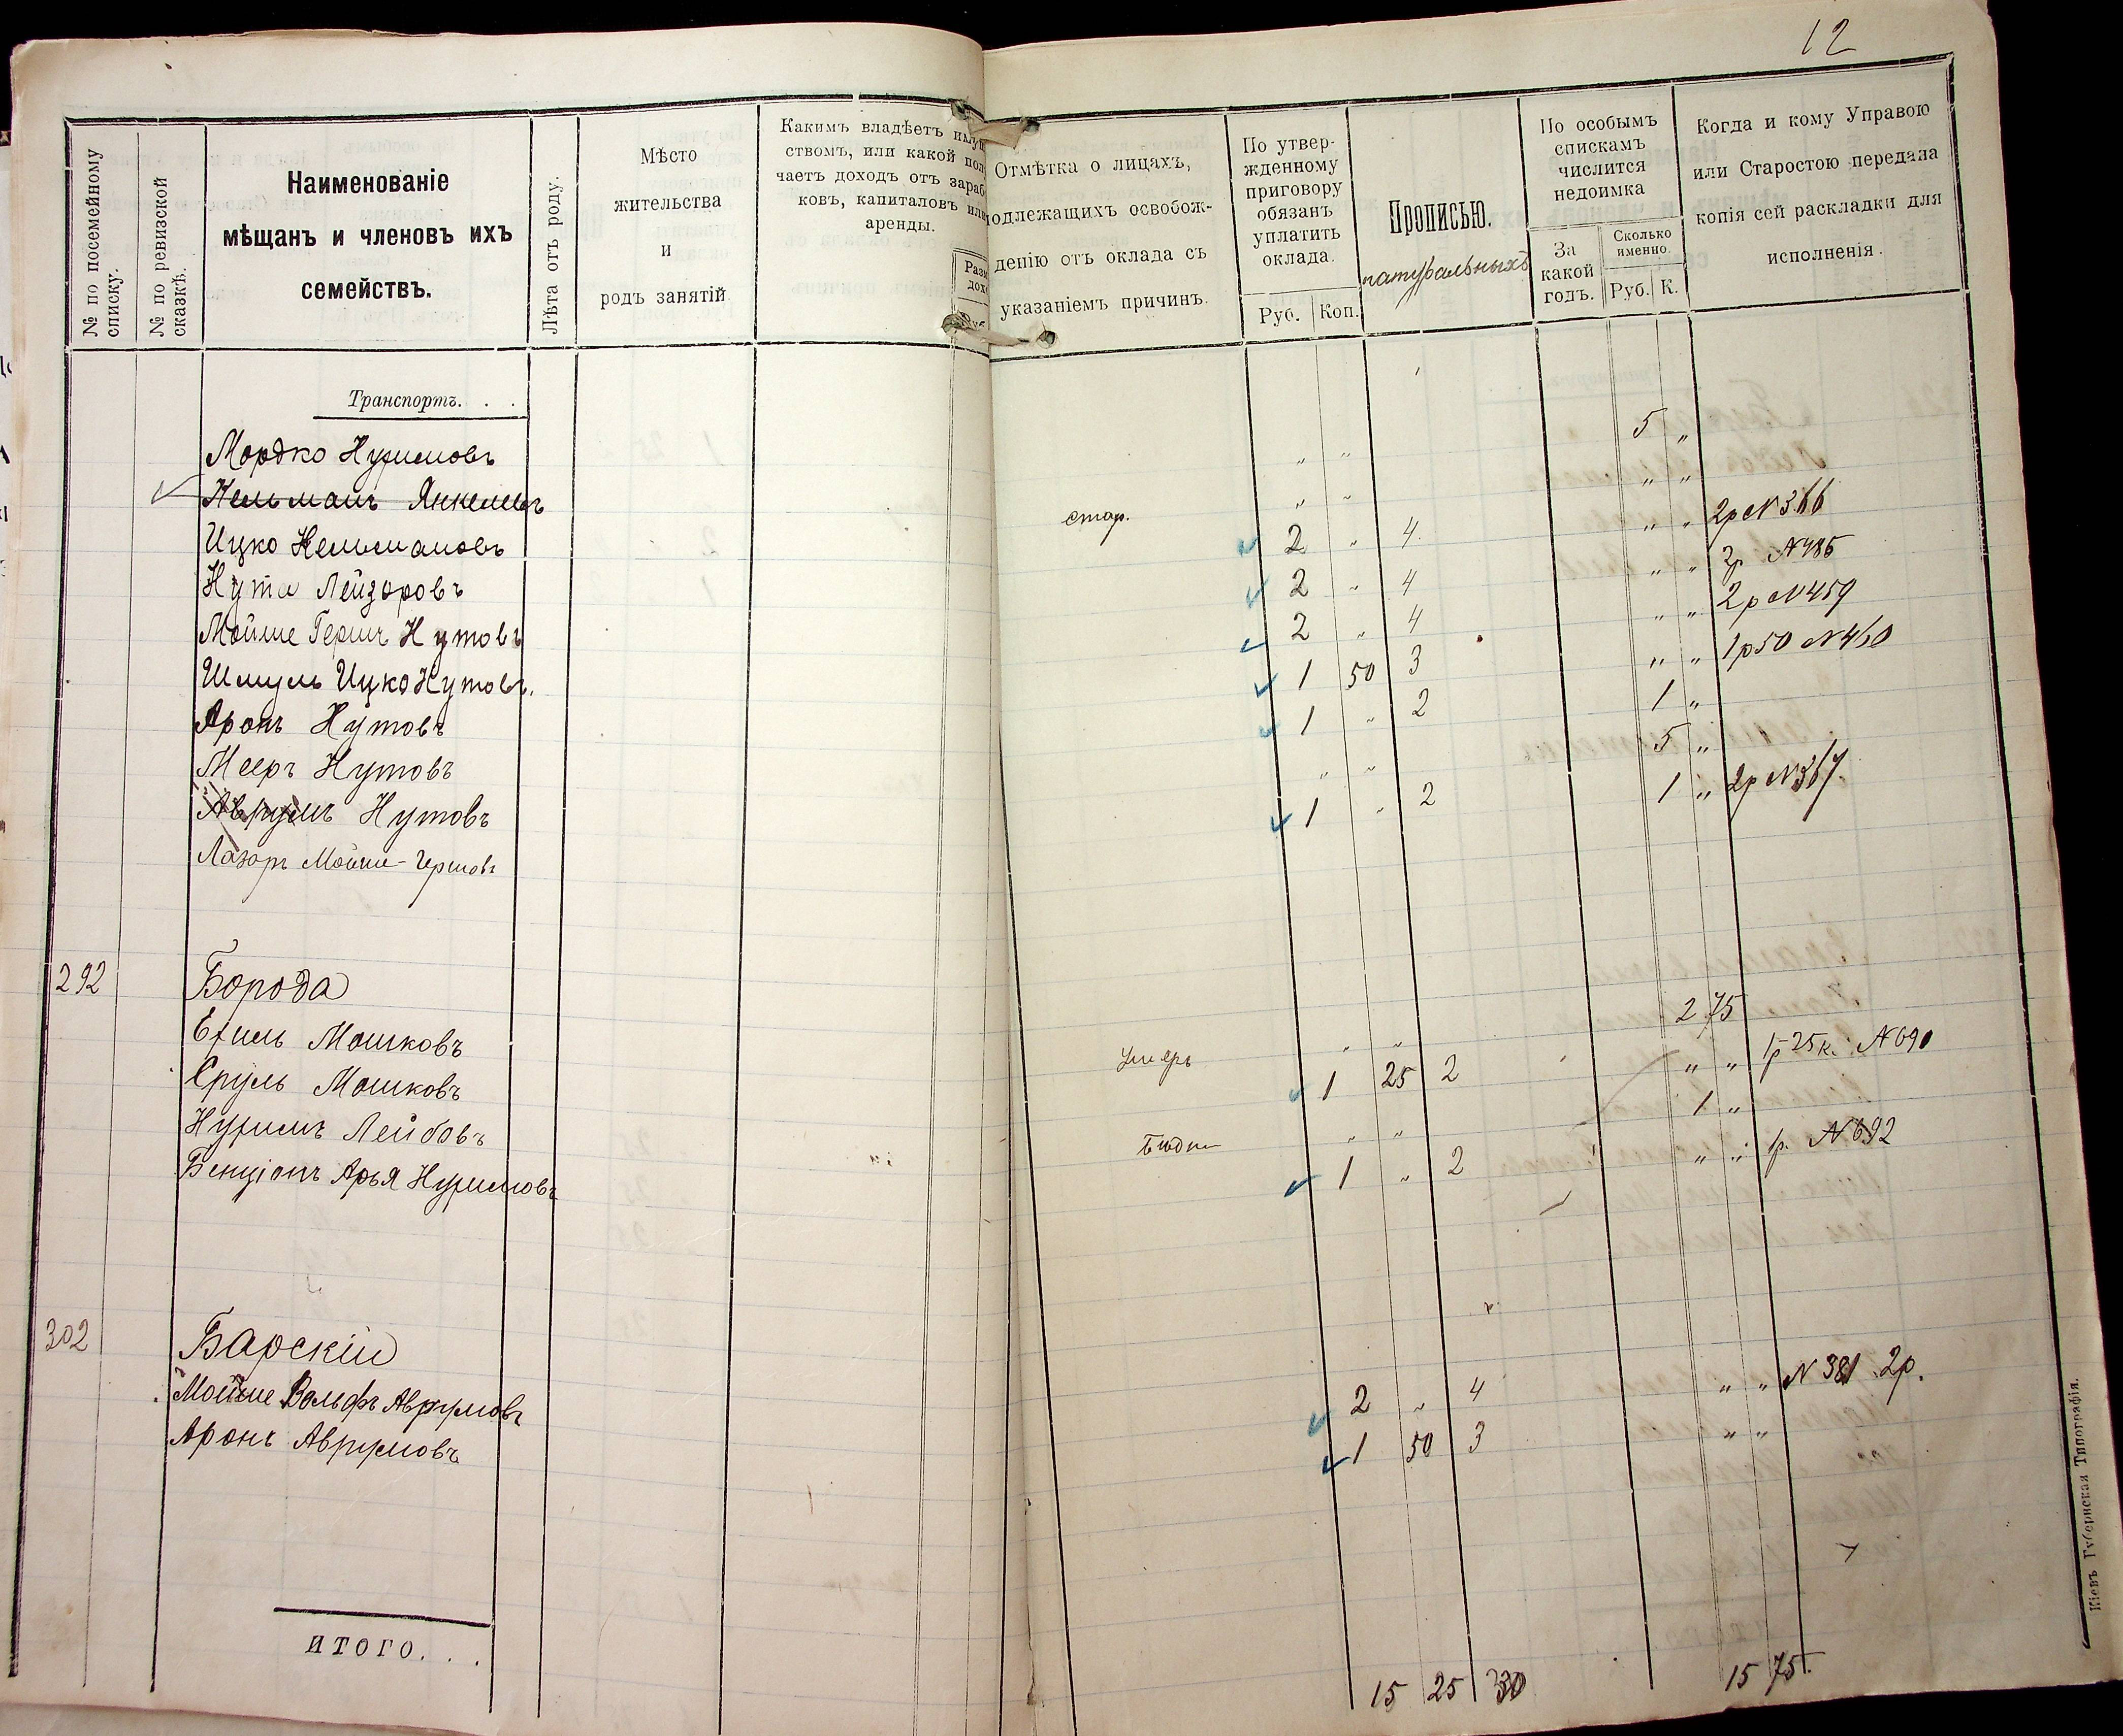 12
№ по посемейному списку.
№ по ревизской сказкѣ.
Наименованіе
мѣщанъ и членовъ ихъ
семействъ.
Лѣта отъ роду.
Мѣсто
жительства
и
родъ занятій
Какимъ владѣетъ
ствомъ, или какой
чаетъ доходъ отъ зараб
ковъ, капиталовъ или
аренды.
Отмѣтка о лицахъ,
одлежащихъ освобож-
денію отъ оклада съ
указаніемъ причинъ.
По утвер-
жденному
приговору
обязанъ
уплатить
оклада.
Руб. Коп.
Прописью.
натуральныхъ
По особымъ
спискамъ
числится
недоимка
За
какой
годъ.
Сколько
именно.
Руб. К.
Когда и кому Управою
или Старостою передана
копія сей раскладки для
исполненія.
Транспортъ. . .
Мордко Нухимовъ " " 5 "
Кельманъ Янкелевъ стар. " " " "
Ицко Кельмановъ 2 " 4 " " 2р №366
Нута Лейзоровъ 2 " 4 " " 2р №485
Мойше Гершъ Нутовъ 2 " 4 " " 2р №459
Шмуль Ицко Нутовъ. 1 50 3 " " 1р50 №460
Аронъ Нутовъ 1 " 2 1 "
Мееръ Нутовъ " " 5 "
Аврумъ Нутовъ 1 " 2 1 " 2р №367.
Лазоръ Мойше-Гершовъ
292 Борода
Ехиль Мошковъ умеръ " " 2 75
Сруль Мошковъ 1 25 2 " " 1р 25к. №690
Нухимъ Лейбовъ " " 1 "
Бенціонъ Арья Нухимовъ 1 " 2 " " 1р. №692
302 Барскій
Мойше Вольфъ Аврумовъ 2 " 4 " " №381 2р.
Аронъ Аврумовъ 1 50 3 " "
ИТОГО. . .
15 25 30 15 75.
Кіевъ Губернская Типографія.